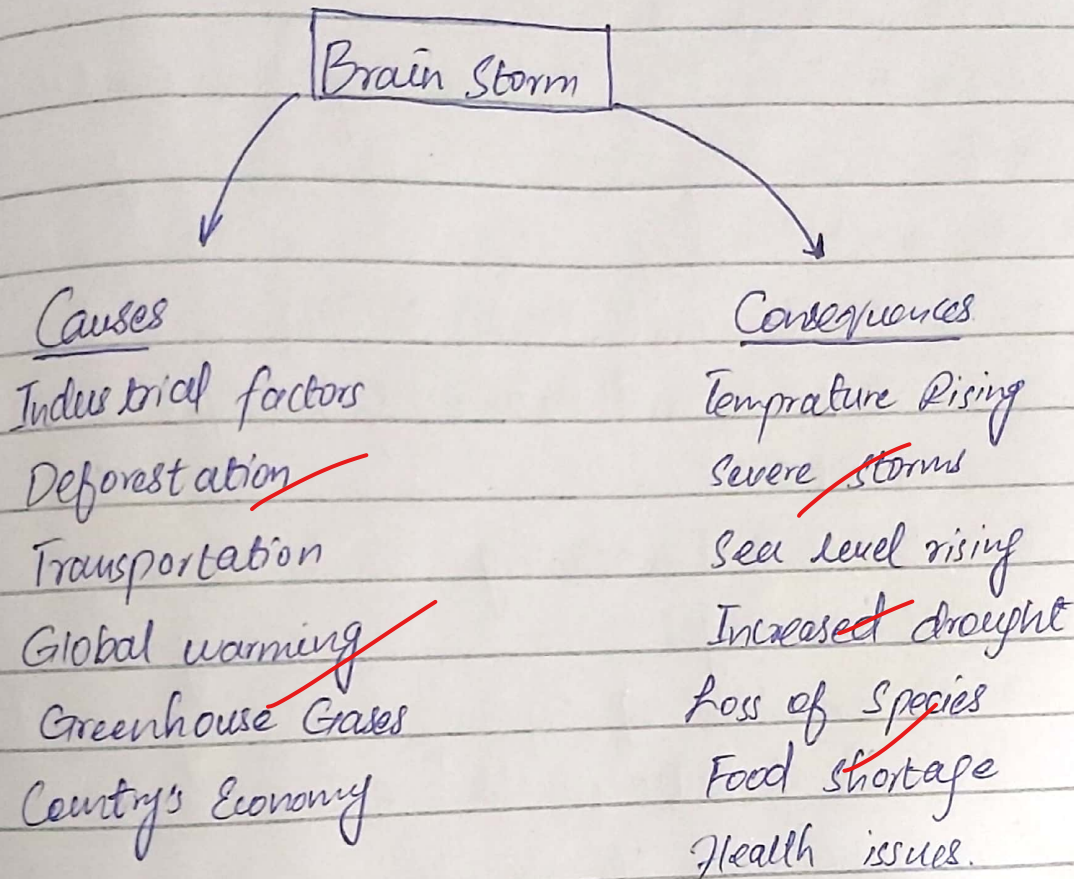 Brain Storm
Causes
Industrial factors
Deforestation
Transportation
Global warming
Greenhouse Gases
Country's Economy
Consequences
Temprature Rising
Severe storms
Sea level rising
Increased drought
Loss of Species
Food shortage
Health issues.